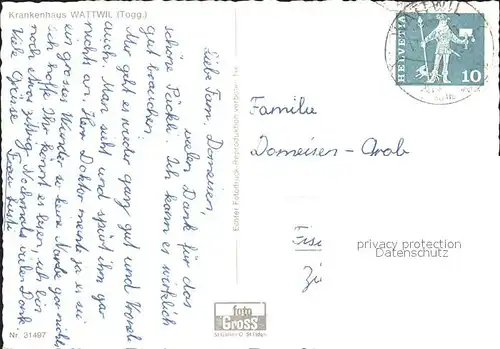 Krankenhaus WATTWIL (Togg.)
Liebe Fam. Domeisen,
vielen Dank für das
schöne Päckli. Ich kann es wirklich
gut brauchen.
Mir geht es wieder ganz gut und
auch. Man sieht und spürt ihm gar
nichts an. Herr Doktor meinte ja es sei
ein grosses Wunder so keine Narbe gar nichts
ich hoffe Ihr könnt es lesen, ich bin
noch etwas zittrig. Nochmals vielen Dank.
Viele Grüsse
Nr. 31497
Echter Fotodruck-Reproduktion verboten
foto
Gross
St. Gallen
HELVETIA
10
Familie
Domeisen-Grob
privacy protection
Datenschutz